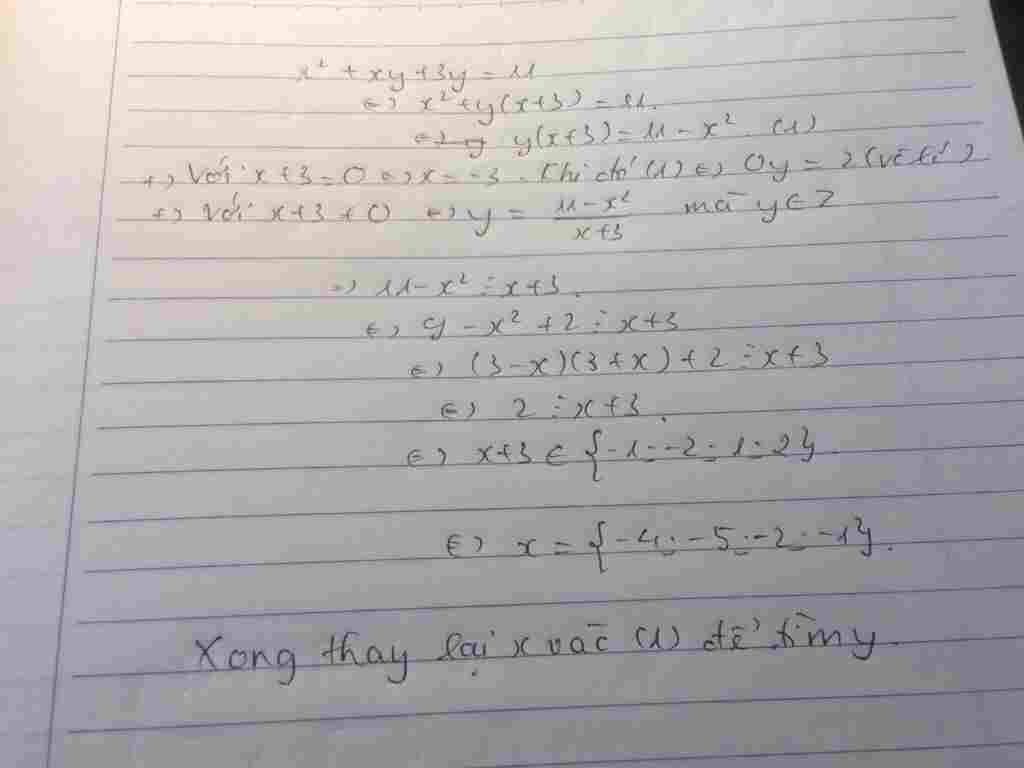 x² + xy + 3y = 11
⇔ x² + y(x+3) = 11.
⇔ y(x+3) = 11 - x² (1)
+, Với x+3 = 0 ⇔ x = -3. Khi đó (1) ⇔ 0y = 2 (vô lí)
+, Với x+3 ≠ 0 ⇔ y = (11 - x²)/(x+3) mà y ∈ Z
⇒ 11 - x² ⋮ x+3.
⇔ 9 - x² + 2 ⋮ x+3
⇔ (3-x)(3+x) + 2 ⋮ x+3
⇔ 2 ⋮ x+3.
⇔ x+3 ∈ {-1; -2; 1; 2}
⇔ x = {-4; -5; -2; -1}.
Xong thay lại x vào (1) để tìm y.